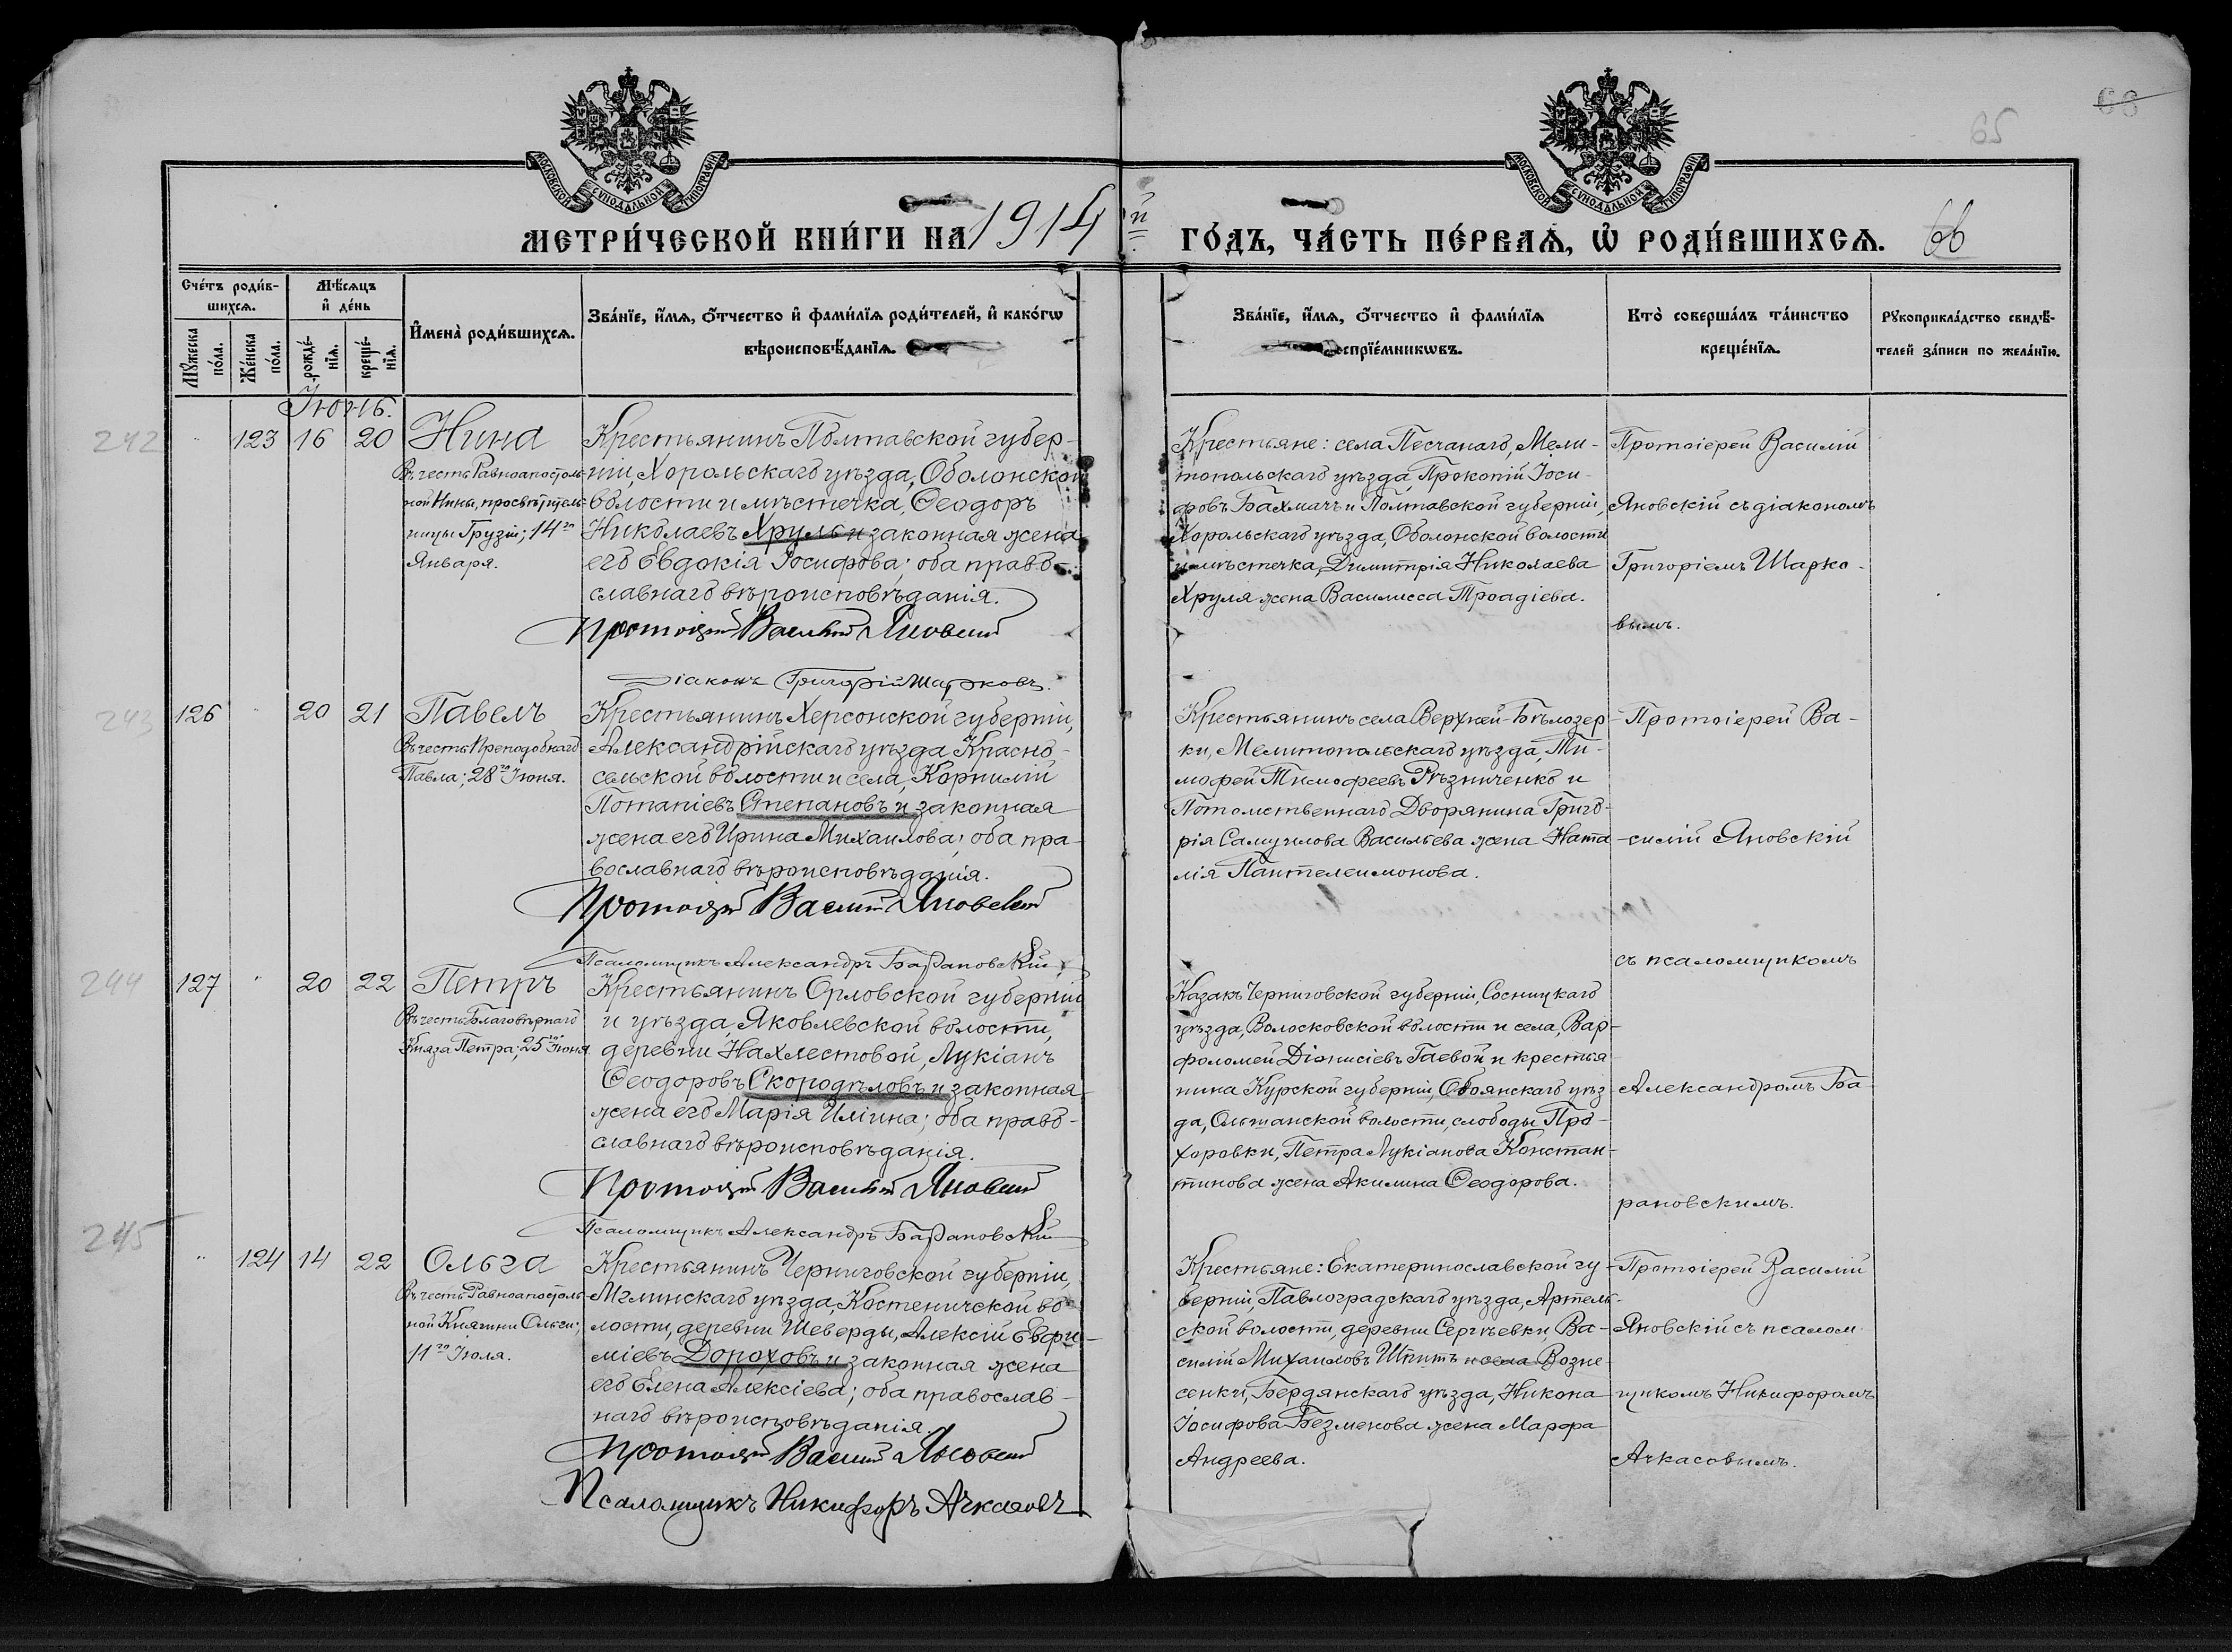 МОСКОВСКОЙ СѴНОДАЛЬНОЙ ТИПОГРАФІИ
МОСКОВСКОЙ СѴНОДАЛЬНОЙ ТИПОГРАФІИ
65
68
МЕТРИ́ЧЕСКОЙ КНИ́ГИ НА 1914 й ГО́ДЪ, ЧА́СТЬ ПЕ́РВАѦ, Ѡ҆ РОДИ́ВШИХСѦ. 66
Сче́тъ роди́в-
шихсѧ.
Мꙋ́жеска по́ла.
Же́нска по́ла.
Мѣ́сѧцъ
и҆ де́нь
рожде́-
нїѧ.
креще́-
нїѧ.
И҆мена̀ роди́вшихсѧ.
Зва́нїе, и҆́мѧ, ѻ҆́тчество и҆ фами́лїѧ роди́телей, и҆ како́гѡ
вѣроисповѣ́данїѧ.
Зва́нїе, и҆́мѧ, ѻ҆́тчество и҆ фами́лїѧ
воспрїе́мникѡвъ.
Кто̀ соверша́лъ та́инство
креще́нїѧ.
Рꙋкоприкла́дство свидѣ́-
телей за́писи по жела́нїю.
Іюнь.
242 " 123 16 20 Нина
Въ честь Равноапостоль-
ной Нины, просвѣтитель-
ницы Грузіи; 14го
Января.
Крестьянинъ Полтавской губер-
ніи, Хорольскаго уѣзда, Оболонской
волости и мѣстечка, Ѳеодоръ
Николаевъ Хруль и законная жена
его Евдокія Іосифова; оба право-
славнаго вѣроисповѣданія.
Протоіерей Василій Яновскій
Діаконъ Григорій Шарковъ.
Крестьяне: села Песчанаго, Мели-
топольскаго уѣзда, Прокопій Іоси-
фовъ Бахмачъ и Полтавской губерніи,
Хорольскаго уѣзда, Оболонской волости
и мѣстечка, Димитрія Николаева
Хруля жена Василисса Троадіева.
Протоіерей Василій
Яновскій съ діакономъ
Григоріемъ Шарко-
вымъ.
243 126 " 20 21 Павелъ
Въ честь Преподобнаго
Павла; 28го Іюня.
Крестьянинъ Херсонской губерніи,
Александрійскаго уѣзда, Красно-
сельской волости и села, Корнилій
Потапіевъ Степановъ и законная
жена его Ирина Михаилова; оба пра-
вославнаго вѣроисповѣданія.
Протоіерей Василій Яновскій
Псаломщикъ Александръ Барановскій
Крестьянинъ села Верхней-Бѣлозер-
ки, Мелитопольскаго уѣзда, Ти-
мофей Тимофеевъ Рѣзниченко и
Потомственнаго Дворянина Григо-
рія Самуилова Васильева жена Ната-
лія Пантелеимонова.
Протоіерей Ва-
силій Яновскій
съ псаломщикомъ
244 127 " 20 22 Петръ
Въ честь Благовѣрнаго
Князя Петра; 25го Іюня.
Крестьянинъ Орловской губерніи
и уѣзда, Яковлевской волости,
деревни Нахлестовой, Лукіанъ
Ѳеодоровъ Скородѣловъ и законная
жена его Марія Илiина; оба право-
славнаго вѣроисповѣданія.
Протоіерей Василій Яновскій
Псаломщикъ Александръ Барановскій
Казакъ Черниговской губерніи, Сосницкаго
уѣзда, Волосковской волости и села, Вар-
фоломей Діонисіевъ Гаевой и крестья-
нина Курской губерніи, Обоянскаго уѣз-
да, Ольшанской волости, слободы Про-
хоровки, Петра Лукіанова Констан-
тинова жена Акилина Ѳеодорова.
Александромъ Ба-
рановскимъ.
245 " 124 14 22 Ольга
Въ честь Равноапостоль-
ной Княгини Ольги;
11го Іюля.
Крестьянинъ Черниговской губерніи,
Мглинскаго уѣзда, Костеничской во-
лости, деревни Шеверды, Алексій Евфи-
міевъ Дороховъ и законная жена
его Елена Алексіева; оба православ-
наго вѣроисповѣданія.
Протоіерей Василій Яновскій
Псаломщикъ Никифоръ Ачкасовъ
Крестьяне: Екатеринославской гу-
берніи, Павлоградскаго уѣзда, Артель-
ской волости, деревни Сергѣевки, Ва-
силій Михаиловъ Шпитъ и села Возне-
сенки, Бердянскаго уѣзда, Никона
Іосифова Безменова жена Марфа
Андреева.
Протоіерей Василій
Яновскій съ псалом-
щикомъ Никифоромъ
Ачкасовымъ.